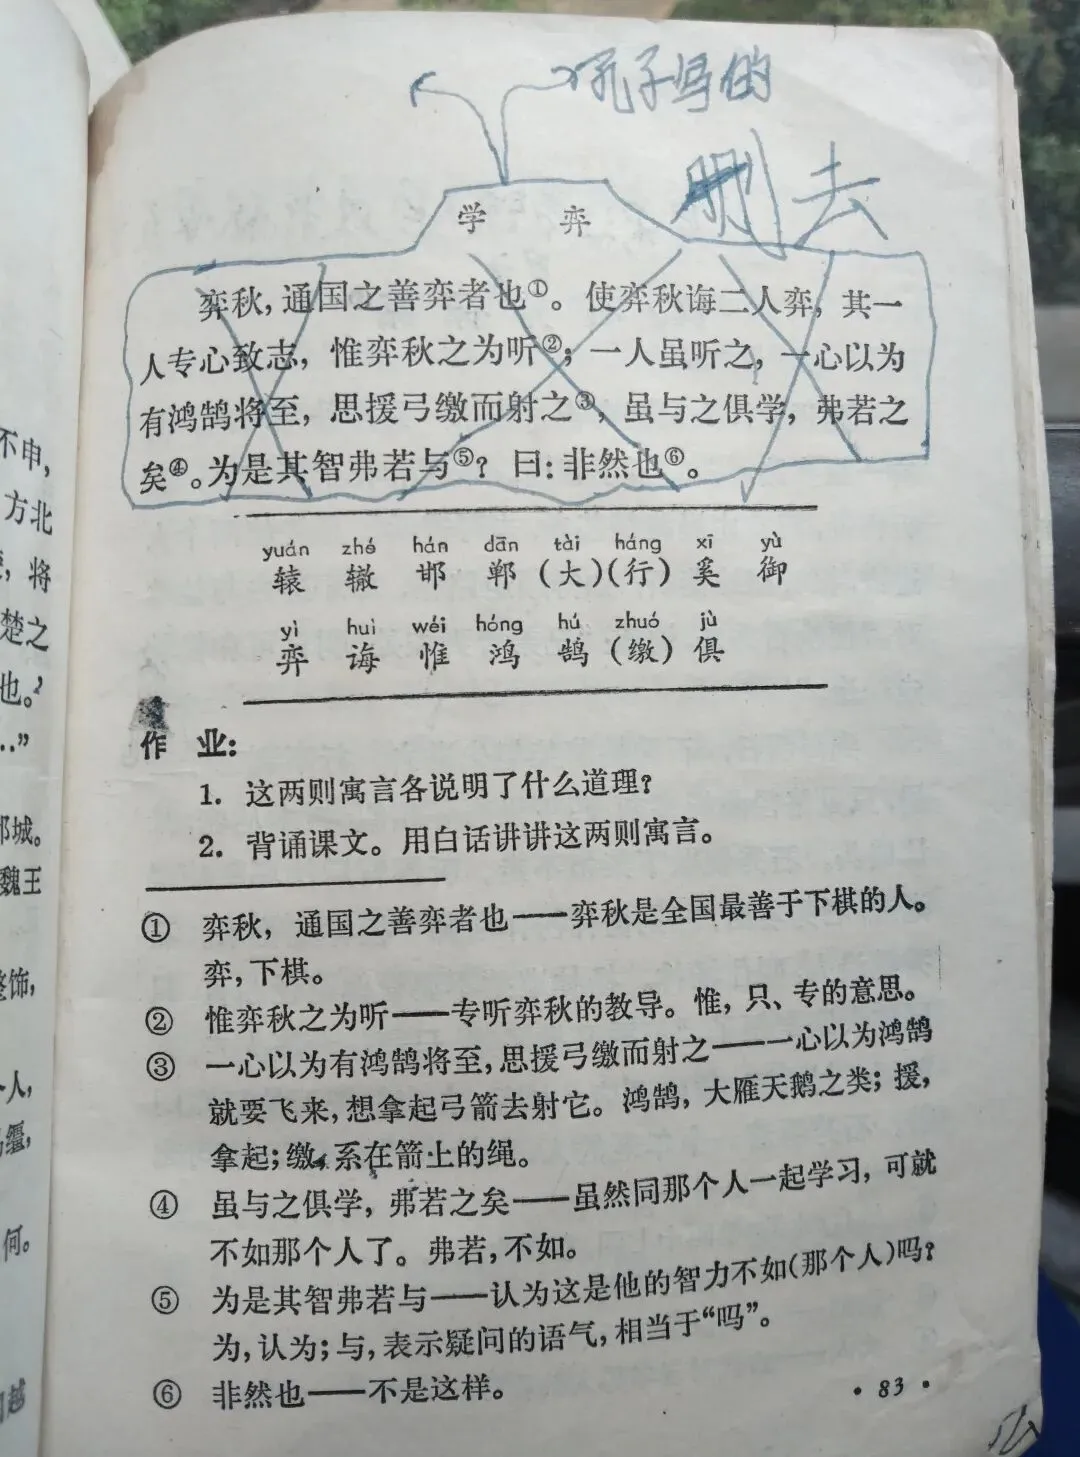 孔子写的
删去
学 弈
弈秋，通国之善弈者也①。使弈秋诲二人弈，其一
人专心致志，惟弈秋之为听②；一人虽听之，一心以为
有鸿鹄将至，思援弓缴而射之③，虽与之俱学，弗若之
矣④。为是其智弗若与⑤？曰：非然也⑥。
yuán zhé hán dān tài háng xī yù
辕 辙 邯 郸 （大）（行） 奚 御
yì huì wéi hóng hú zhuó jù
弈 诲 惟 鸿 鹄 （缴） 俱
作 业：
1. 这两则寓言各说明了什么道理？
2. 背诵课文。用白话讲讲这两则寓言。
① 弈秋，通国之善弈者也——弈秋是全国最善于下棋的人。
弈，下棋。
② 惟弈秋之为听——专听弈秋的教导。惟，只、专的意思。
③ 一心以为有鸿鹄将至，思援弓缴而射之——一心以为鸿鹄
就要飞来，想拿起弓箭去射它。鸿鹄，大雁天鹅之类；援，
拿起；缴，系在箭上的绳。
④ 虽与之俱学，弗若之矣——虽然同那个人一起学习，可就
不如那个人了。弗若，不如。
⑤ 为是其智弗若与——认为这是他的智力不如（那个人）吗？
为，认为；与，表示疑问的语气，相当于“吗”。
⑥ 非然也——不是这样。
· 83 ·
不申，
方北
，将
楚之
也。”
…”
城。
魏王
饰，
人，
缰，
何。
越